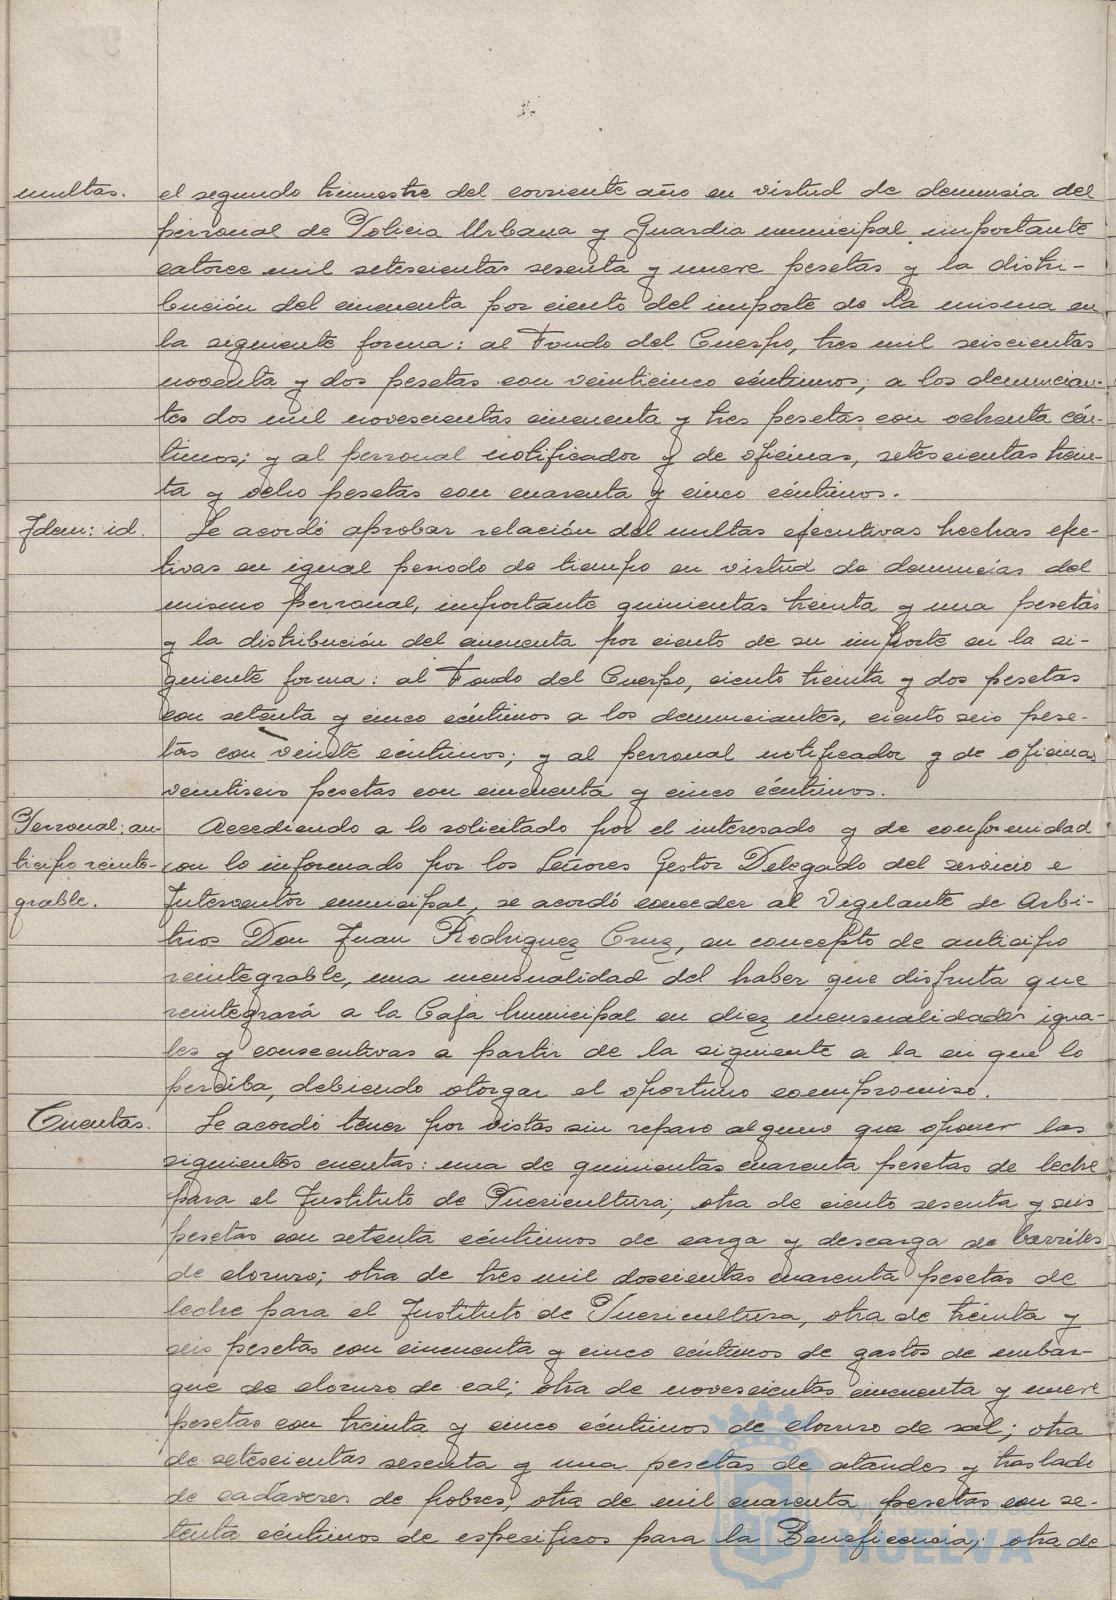 multas.
el segundo trimestre del corriente año en virtud de denuncia del
personal de Policia Urbana y Guardia municipal importante
catorce mil setescientas sesenta y nueve pesetas y la distri-
bución del cincuenta por ciento del importe de la misma en
la siguiente forma: al Fondo del Cuerpo, tres mil seiscientas
noventa y dos pesetas con veinticinco céntimos; a los denuncian-
tes dos mil novescientas cincuenta y tres pesetas con ochenta cén-
timos; y al personal notificador y de oficinas, setescientas trein-
ta y ocho pesetas con cuarenta y cinco céntimos.
Idem: id.
Se acordó aprobar relación del multas ejecutivas hechas efec-
tivas en igual periodo de tiempo en virtud de denuncias del
mismo personal, importante quinientas treinta y una pesetas
y la distribución del cincuenta por ciento de su importe en la si-
guiente forma: al Fondo del Cuerpo, ciento treinta y dos pesetas
con setenta y cinco céntimos a los denunciantes, ciento seis pese-
tas con veinte céntimos; y al personal notificador y de oficinas
veintiseis pesetas con cincuenta y cinco céntimos.
Personal: an-
ticipo reinte-
grable.
Accediendo a lo solicitado por el interesado y de conformidad
con lo informado por los Señores Gestor Delegado del servicio e
Interventor municipal, se acordó conceder al Vigilante de Arbi-
trios Don Juan Rodriguez Cruz, en concepto de anticipo
reintegrable, una mensualidad del haber que disfruta que
reintegrará a la Caja municipal en diez mensualidades igua-
les y consecutivas a partir de la siguiente a la en que lo
perciba, debiendo otorgar el oportuno compromiso.
Cuentas.
Se acordó tener por vistas sin reparo alguno que oponer las
siguientes cuentas: una de quinientas cuarenta pesetas de leche
para el Instituto de Puericultura; otra de ciento sesenta y seis
pesetas con setenta céntimos de carga y descarga de barriles
de cloruro; otra de tres mil doscientas cuarenta pesetas de
leche para el Instituto de Puericultura, otra de treinta y
seis pesetas con cincuenta y cinco céntimos de gastos de embar-
que de cloruro de cal; otra de novescientas cincuenta y nueve
pesetas con treinta y cinco céntimos de cloruro de sal; otra
de setescientas sesenta y una pesetas de ataudes y traslado
de cadáveres de pobres; otra de mil cuarenta pesetas con se-
tenta céntimos de especificos para la Beneficencia; otra de
Ayuntamiento de
HUELVA